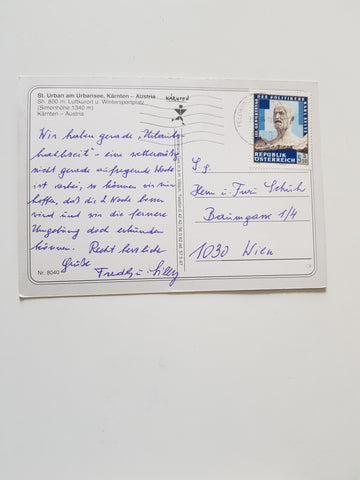 St. Urban am Urbansee, Kärnten – Austria
Sh. 800 m. Luftkurort u. Wintersportplatz
(Simonhöhe 1340 m)
Kärnten – Austria
Wir haben gerade
hochzeit" - eine
nicht gerade aufregende Woche
ist vorbei, so können wir nur
hoffen, daß die 2. Woche besser
wird und wir die fernere
Umgebung doch erkunden
können. Recht herzliche
Grüße
Fredy u. Silly
Nr. 8040
KÄRNTEN
DER POLITIKER
REPUBLIK
ÖSTERREICH
S.g.
Herrn u. Frau Schuh
Baumgasse 1/4
1030 Wien